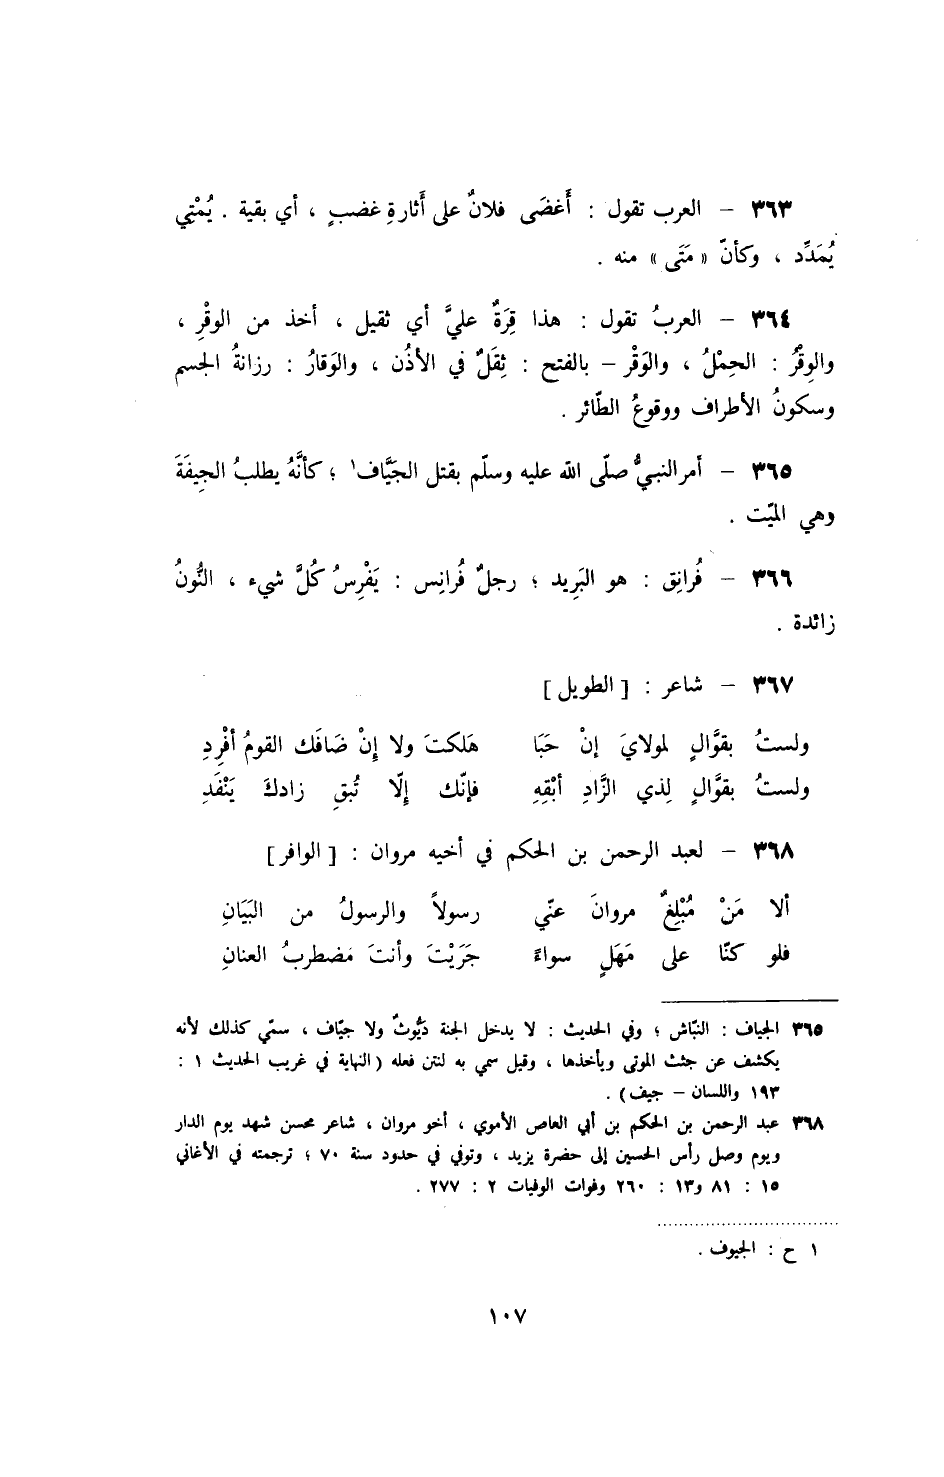 ٣٦٣ – العرب تقول : أَغضَى فلانٌ على أَثارةِ غضبٍ ، أي بقية . يُمْتِي
يُمَدِّد ، وكأنّ « مَتَى » منه .
٣٦٤ – العربُ تقول : هذا قِرَةٌ عليَّ أي ثقيل ، أخذ من الوقْرِ ،
والوِقْرُ : الحِمْلُ ، والوَقْر – بالفتح : ثِقَلٌ في الأذُن ، والوَقارُ : رزانةُ الجسم
وسكونُ الأطراف ووقوعُ الطّائر .
٣٦٥ – أمر النبيُّ صلّى الله عليه وسلّم بقتل الجَيَّاف١ ؛ كأنَّهُ يطلبُ الجِيفَةَ
وهي الميّت .
٣٦٦ – فُرانِق : هو البَرِيد ؛ رجلٌ فُرانِس : يَفْرِسُ كُلَّ شيء ، النُّونُ
زائدة .
٣٦٧ – شاعر : [ الطويل ]
ولستُ بقوَّالٍ لمولايَ إنْ حَبَا هَلكتَ ولا إنْ ضَافَك القومُ أفْرِدِ
ولستُ بقوَّالٍ لِذي الزَّادِ أبْقِهِ فإنّك إلّا تُبقِ زادكَ يَنْفَدِ
٣٦٨ – لعبد الرحمن بن الحكم في أخيه مروان : [ الوافر ]
ألا مَنْ مُبْلِغٌ مروانَ عنّي رسولاً والرسولُ من البَيَانِ
فلو كنّا على مَهَلٍ سواءً جَرَيْتَ وأنتَ مضطربُ العنانِ
٣٦٥ الجياف : النبّاش ؛ وفي الحديث : لا يدخل الجنة ديُّوثٌ ولا جيّاف ، سمّي كذلك لأنه
يكشف عن جثث الموتى ويأخذها ، وقيل سمي به لنتن فعله (النهاية في غريب الحديث ١ :
١٩٣ واللسان – جيف) .
٣٦٨ عبد الرحمن بن الحكم بن أبي العاص الأموي ، أخو مروان ، شاعر محسن شهد يوم الدار
ويوم وصل رأس الحسين إلى حضرة يزيد ، وتوفي في حدود سنة ٧٠ ؛ ترجمته في الأغاني
١٥ : ٨١ و١٣ : ٢٦٠ وفوات الوفيات ٢ : ٢٧٧ .
١ ح : الجيوف .
١٠٧